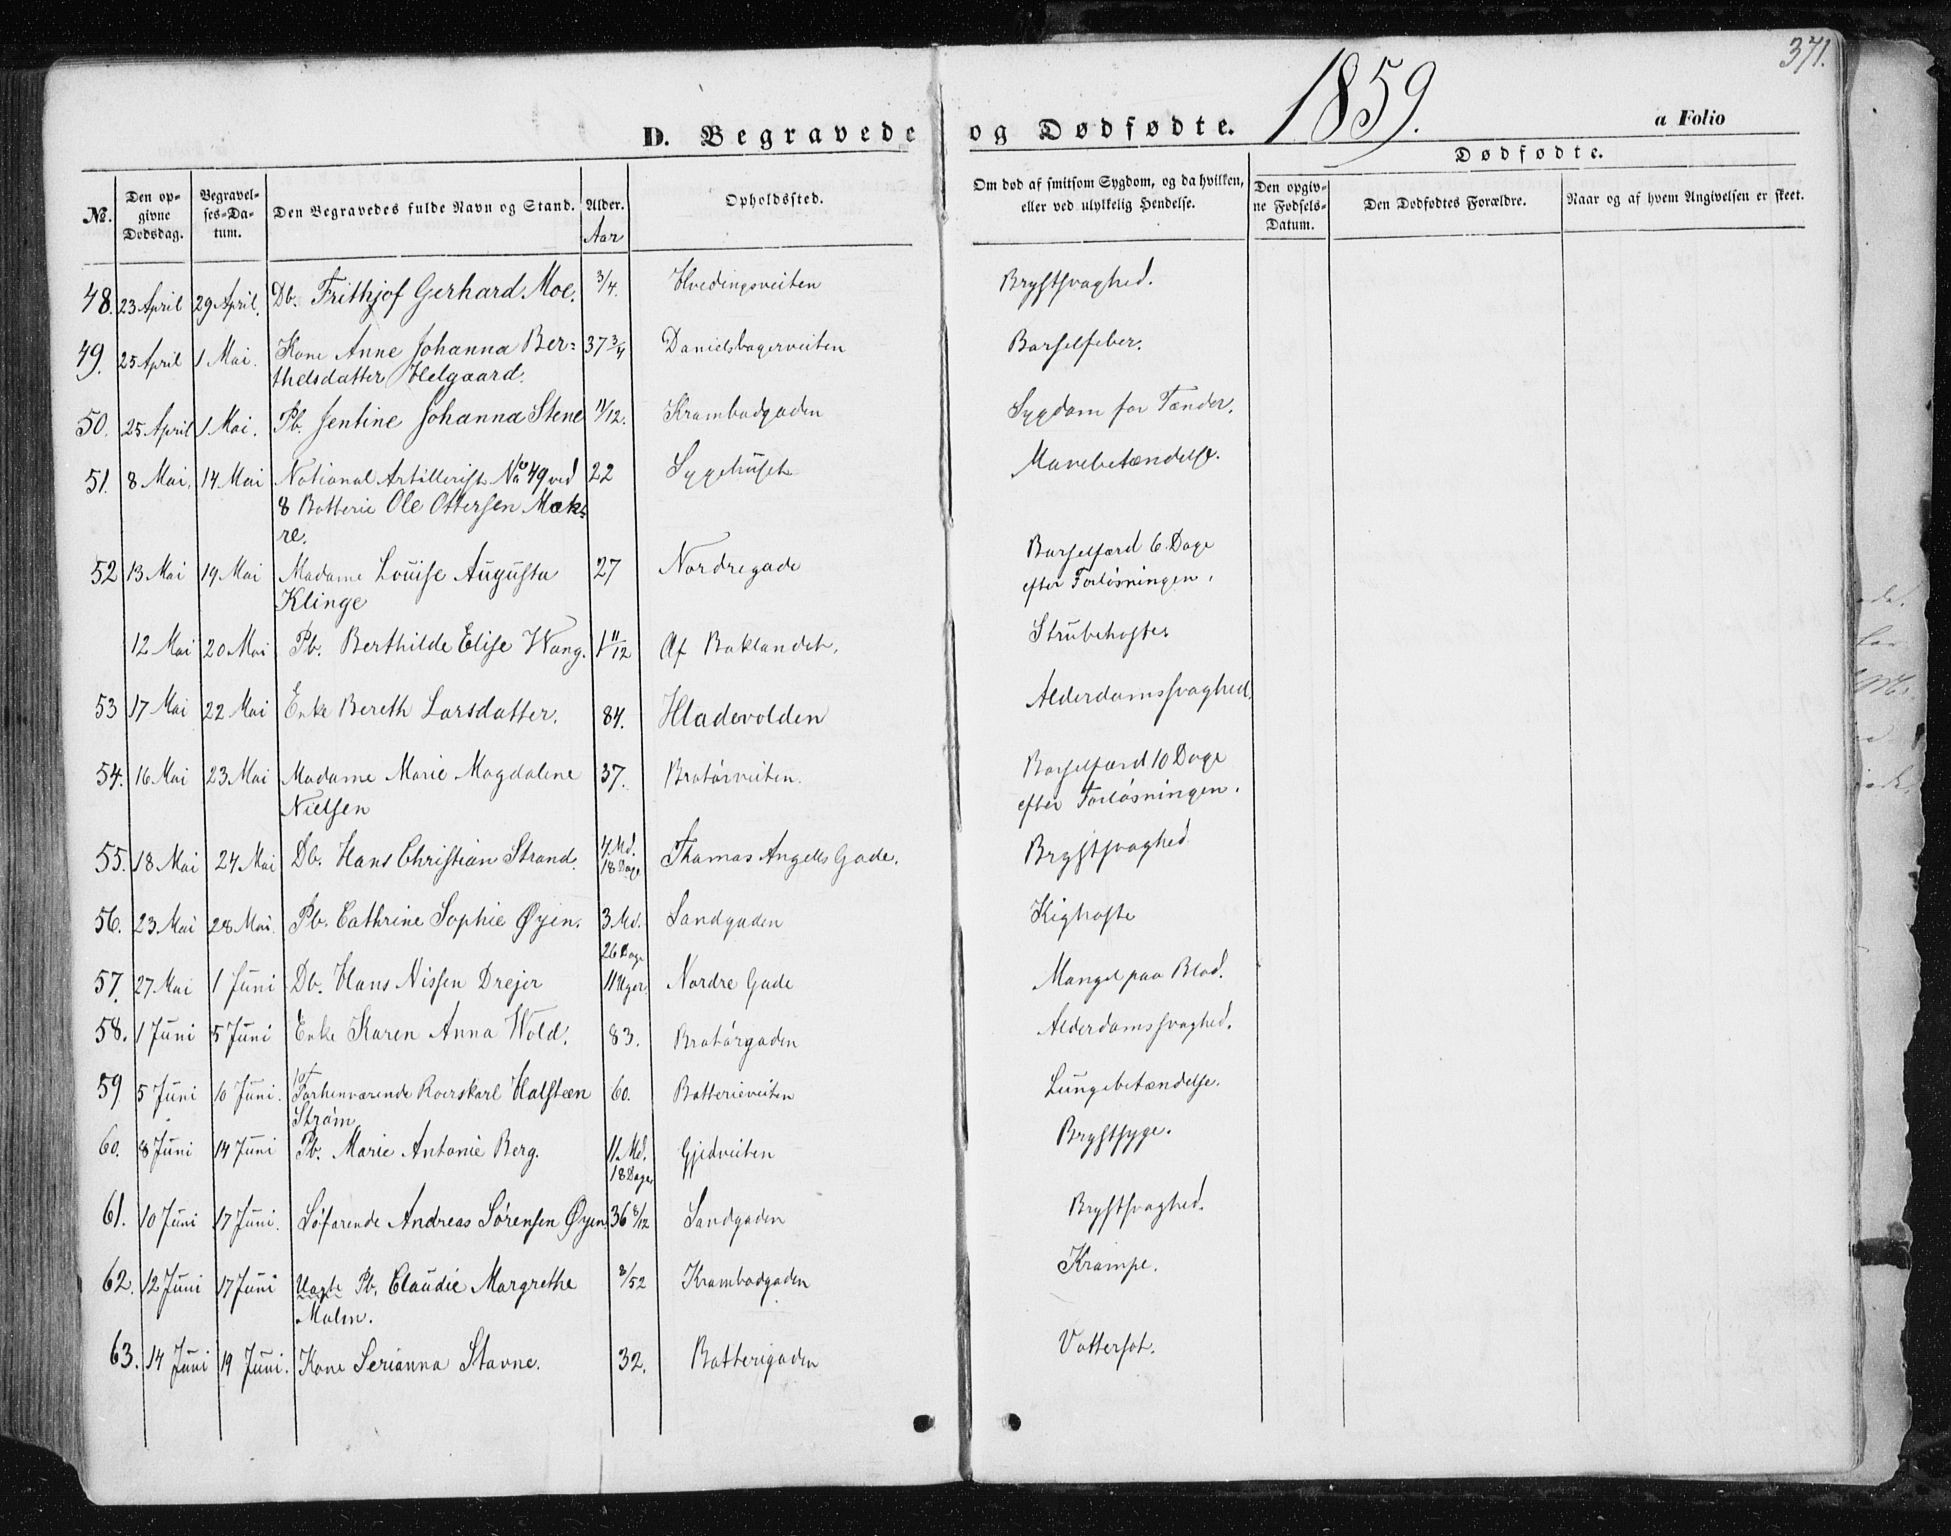 371.
D. Begravede og Dødfødte. 1859. a Folio
Dødfødte.
No. Den opgivne Dødsdag. Begravelses-Datum. Den Begravedes fulde Navn og Stand. Alder. Opholdssted. Om død af smitsom Sygdom, og da hvilken, eller ved ulykkelig Hendelse. Den opgivne Fødsels-Datum. Den Dødfødtes Forældre. Naar og af hvem Angivelsen er skeet.
Aar
48. 23 April 29 April. Db. Frithjof Gerhard Moe. 3/4. Hvedingsveiten Brystsvaghed.
49. 25 April 1 Mai. Kone Anne Johanna Ber- 37 3/4 Danielsbagerveiten Barselfeber.
thelsdatter Helgaard.
50. 25 April 1 Mai. Pb. Jentine Johanna Stene 11/12. Krambodgaden Sygdom for Tænder.
51. 8 Mai. 14 Mai National Artillerist No 49 ved 22 Sygehuset Mavebetændelse.
8 Batterie Ole Ottersen Mæk-
re.
52 13 Mai 19 Mai Madame Louise Augusta 27 Nordregade Barselfærd 6 Dage
Klinge efter Forløsningen.
12 Mai 20 Mai Pb. Berthilde Elise Wang. 1 11/12 Af Baklandet. Strubehoste
53 17 Mai 22 Mai Enke Bereth Larsdatter. 84. Hladevolden Alderdomssvaghed.
54. 16 Mai 23 Mai Madame Marie Magdalene 37. Bratørveiten. Barselfærd 10 Dage
Nielsen efter Forløsningen.
55. 18 Mai 24 Mai Db. Hans Christian Strand. 4 Md. 18 Dage Thomas Angells Gade. Brystsvaghed
56. 23 Mai 28 Mai. Pb. Cathrine Sophie Øyen. 3 Md. 26 Dage Sandgaden Kighoste
57. 27 Mai 1 Juni Db. Hans Nissen Drejer 11 Uger. Nordre Gade Mangel paa Blod.
58. 1 Juni 5 Juni Enke Karen Anna Wold. 83. Bratørgaden Alderdomssvaghed.
59 5 Juni 10 Juni. Forhenværende Roerskarl Halsteen 60. Batterieveiten Lungebetændelse.
Strøm
60. 8 Juni 14 Juni Pb. Marie Antonie Berg. 11 Md. 18 Dage Gjedveiten Brystsyge.
61. 10 Juni 17 Juni. Søfarende Andreas Sørensen Øyen 36 8/12 Sandgaden Brystsvaghed.
62. 12 Juni 17 Juni Uægte Pb. Claudie Margrethe 3/52 Krambodgaden Krampe.
Malm.
63. 14 Juni 19 Juni. Kone Serianna Stavne. 32. Batterigaden Vattersot.